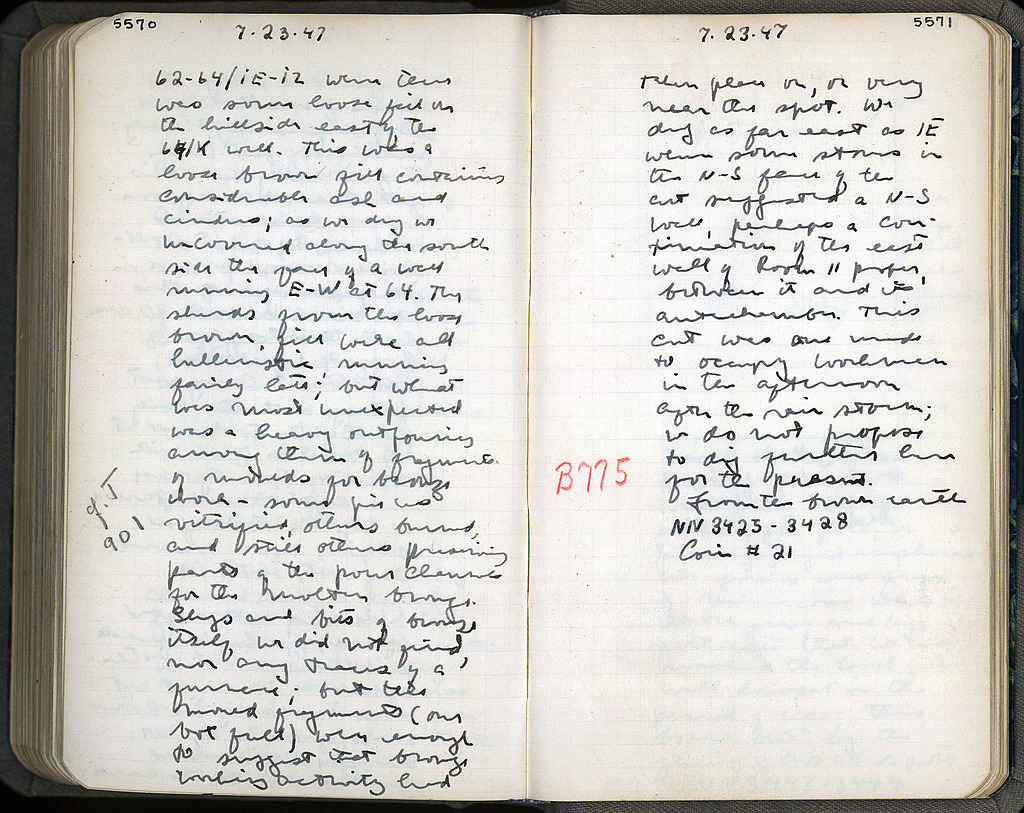 5570
7.23.47
62-64/iE-i2 were there
was some loose fill on
the hillside east of the
64/K wall. This was a
loose brown fill containing
considerable ash and
cinders; as we dug we
uncovered along the south
side the face of a wall
running E-W at 64. The
sherds from the loose
brown fill were all
hellenistic, running
fairly late; but what
was most unexpected
was a heavy outpouring
among them of fragments
of moulds for bronze
work - some pieces
vitrified, others burned,
and still others preserving
parts of the pour channel
for the molten bronze.
Slags and bits of bronze
itself we did not find,
nor any traces of a
furnace; but the
mould fragments (one
box full) were enough
to suggest that bronze
working activity had
cf. J
901
5571
7.23.47
taken place on, or very
near the spot. We
dug as far east as IE
where some stones in
the N-S face of the
cut suggested a N-S
wall, perhaps a con-
tinuation of the east
wall of Room 11 proper,
between it and its
antechamber. This
cut was one made
to occupy workmen
in the afternoon
after the rain storm;
we do not propose
to dig further here
for the present.
From the brown earth
NN 3425-3428
Coin # 21
B775